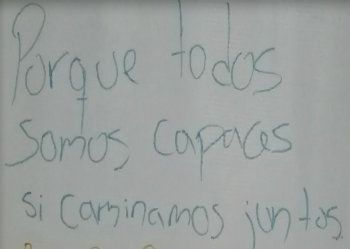 Porque todos
somos capaces
si caminamos juntos